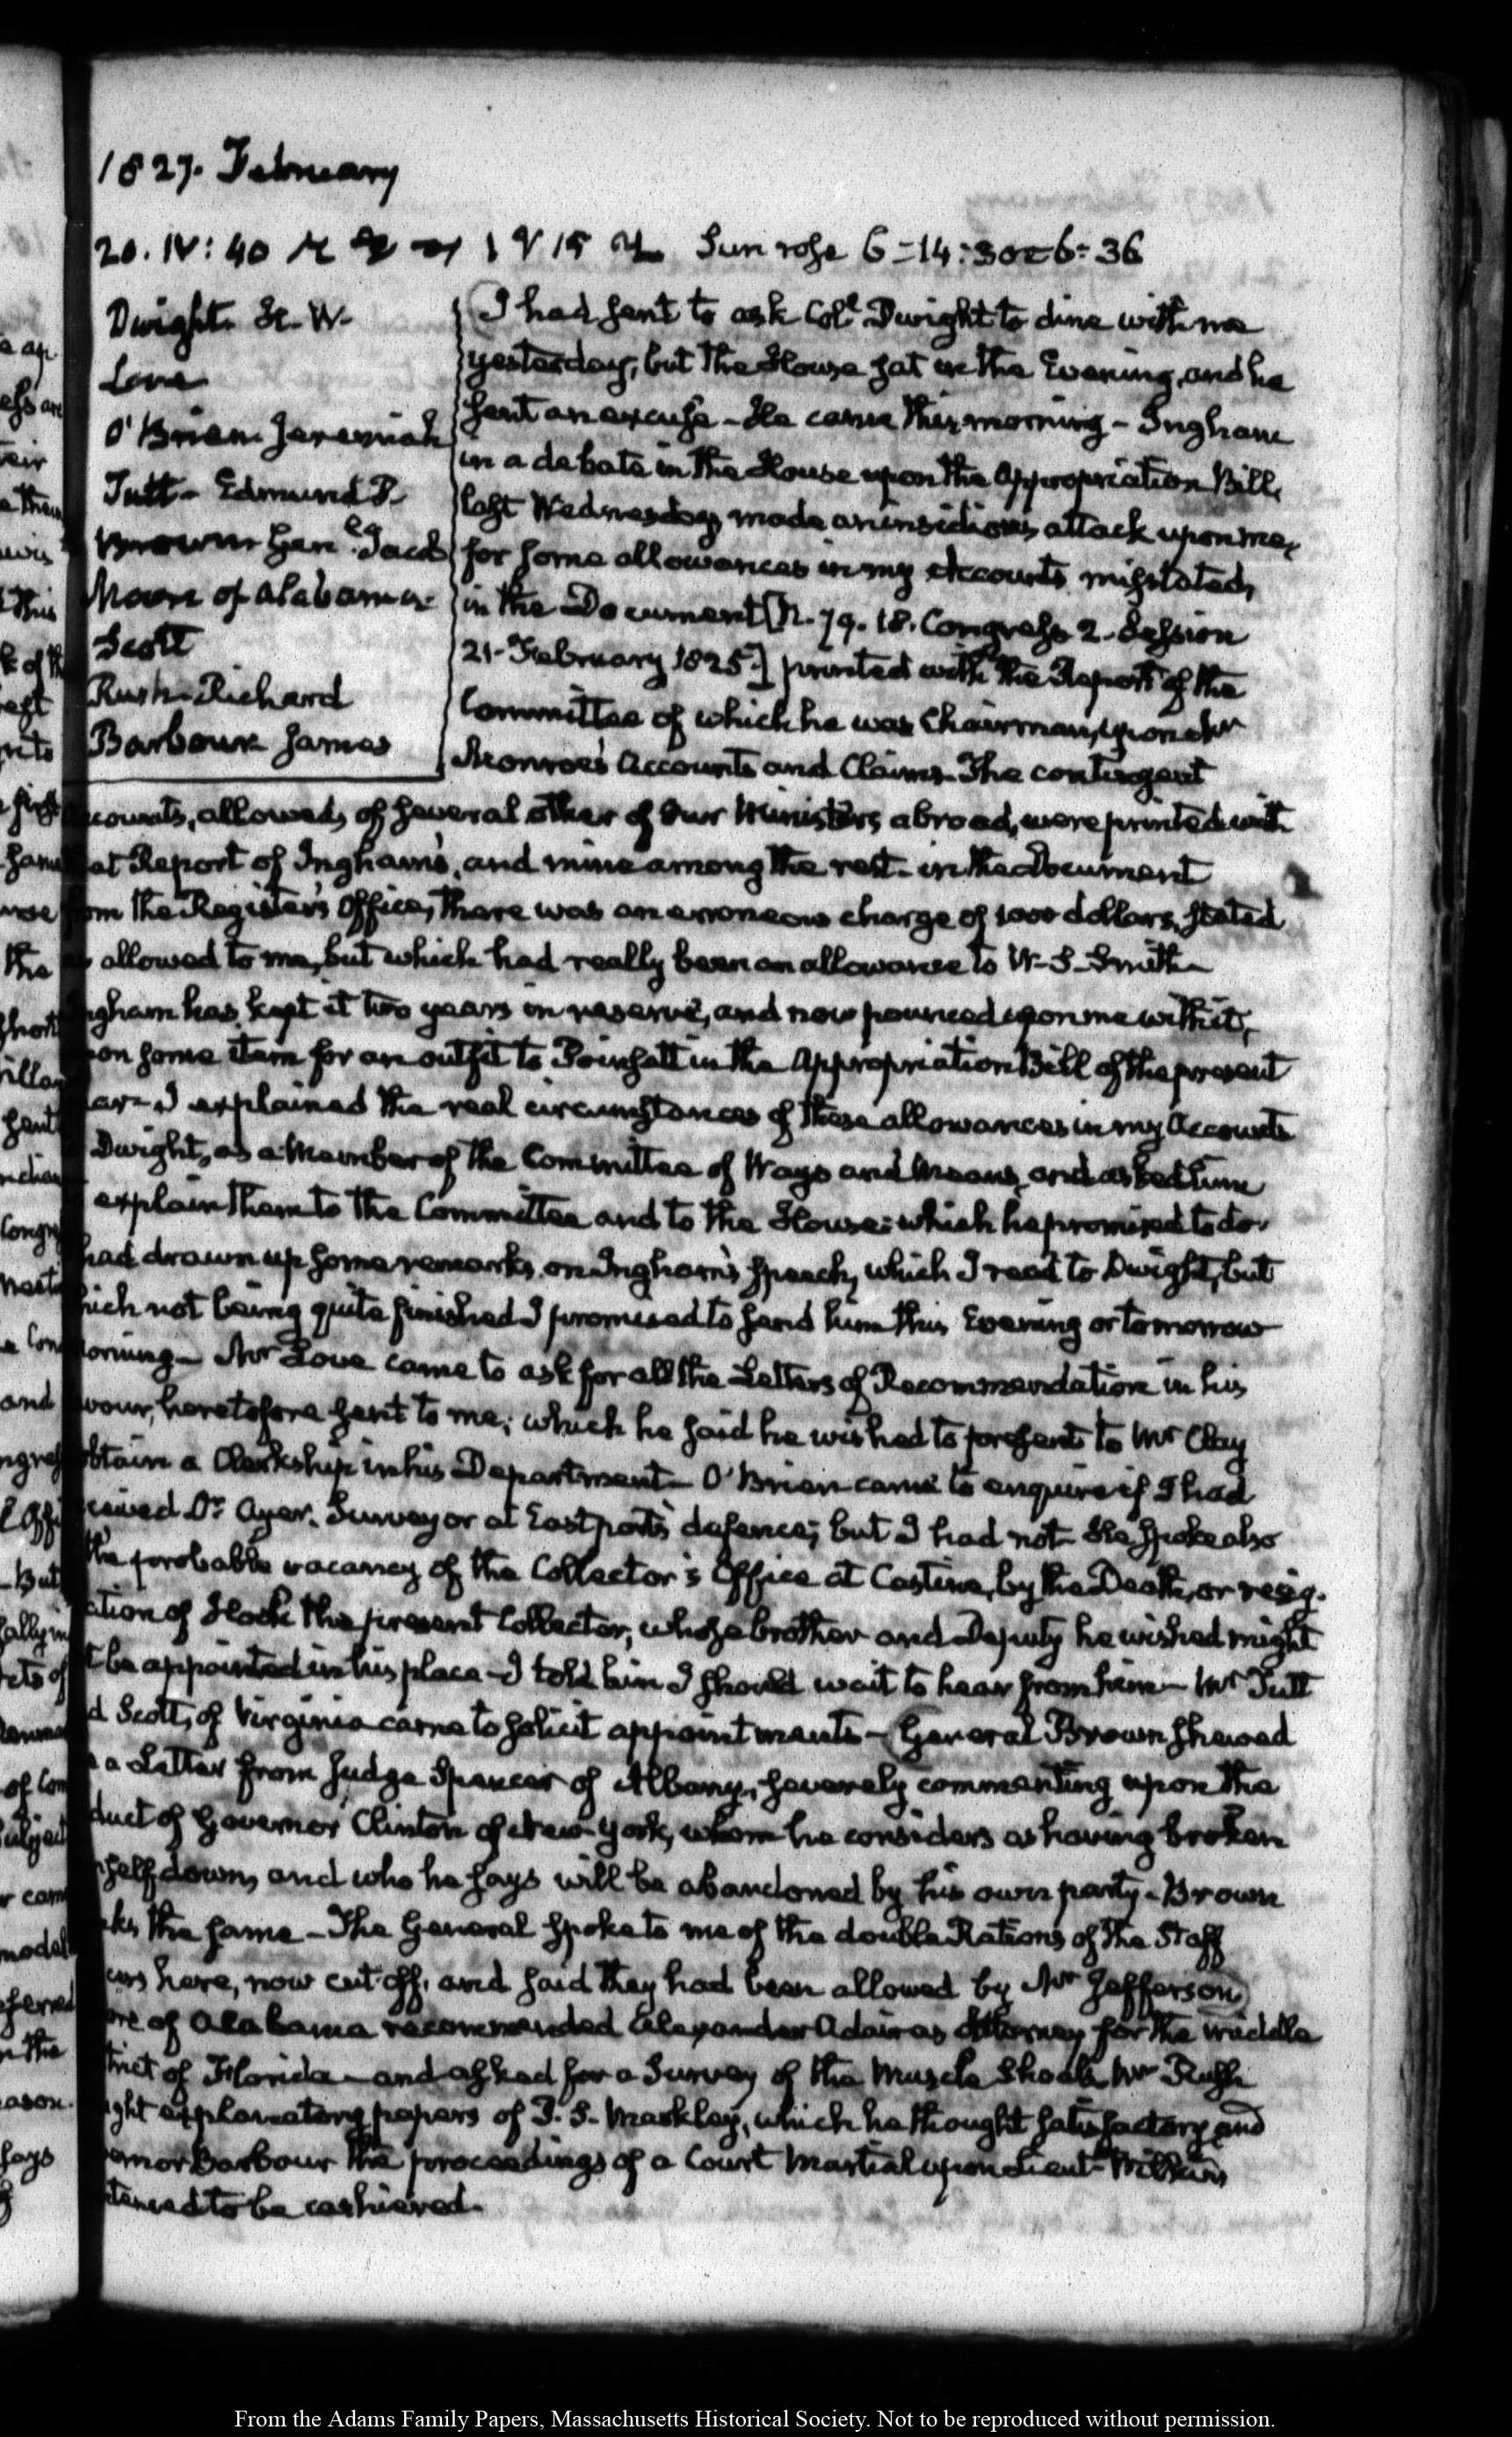 1827. February
20. IV:40 Sun rose 6-14: set 6-36
Dwight. H. W.
Love
O'Brien Jeremiah
Tutt- Edmund P.
Brown Gen.l Jacob
Moore of Alabama
Scott
Rush- Richard
Barbour James
I had sent to ask Col.l Dwight to dine with me
yesterday, but the House sat in the Evening, and he
sent an excuse- He came this morning- Ingham
in a debate in the House upon the Appropriation Bill,
last Wednesday made an insidious attack upon me,
for some allowances in my Accounts misstated,
in the Document [N. 79. 18. Congress 2. Session
21. February 1825.] printed with the Report of the
Committee of which he was Chairman, upon Mr
Monroe's Accounts and Claims. The contingent
accounts, allowed, of several other of our Ministers abroad, were printed with
at Report of Ingham's, and mine among the rest- in the Document
om the Register's Office, there was an erroneous charge of 1000 dollars, stated
as allowed to me, but which had really been an allowance to W. S. Smith-
ngham has kept it two years in reserve, and now pounced upon me with it,
on some item for an outfit to Poinsett in the Appropriation Bill of the present
ar- I explained the real circumstances of these allowances in my Accounts
Dwight, as a Member of the Committee of Ways and Means, and asked him
explain them to the Committee and to the House: which he promised to do-
had drawn up some remarks on Ingham's speech, which I read to Dwight, but
hich not being quite finished I promised to send him this Evening or tomorrow
orning- Mr Love came to ask for all the Letters of Recommendation in his
vour, heretofore sent to me; which he said he wished to present to Mr Clay
obtain a Clerkship in his Department- O'Brien came to enquire if I had
ceived Dr Ayer, Surveyor at Eastport's defence; but I had not- He spoke also
the probable vacancy of the Collector's Office at Castine, by the Death, or resig-
ation of Hook the present Collector, whose brother and Deputy he wished might
t be appointed in his place- I told him I should wait to hear from him- Mr Tutt
d Scott, of Virginia came to solicit appointments- General Brown shewed
a Letter from Judge Spencer of Albany, severely commenting upon the
duct of Governor Clinton of New-York, whom he considers as having broken
self down, and who he says will be abandoned by his own party- Brown
ks the same- The General spoke to me of the double Rations of the Staff
cers here, now cut off, and said they had been allowed by Mr Jefferson
ore of Alabama recommended Alexander Adair as Attorney for the middle
trict of Florida- and asked for a Survey of the Muscle Shoals, Mr Rush
ught explanatory papers of J. S. which he thought satisfactory, and
ernor Barbour the proceedings of a Court Martial upon Lieut. Wilkins
tenced to be cashiered-
From the Adams Family Papers, Massachusetts Historical Society. Not to be reproduced without permission.